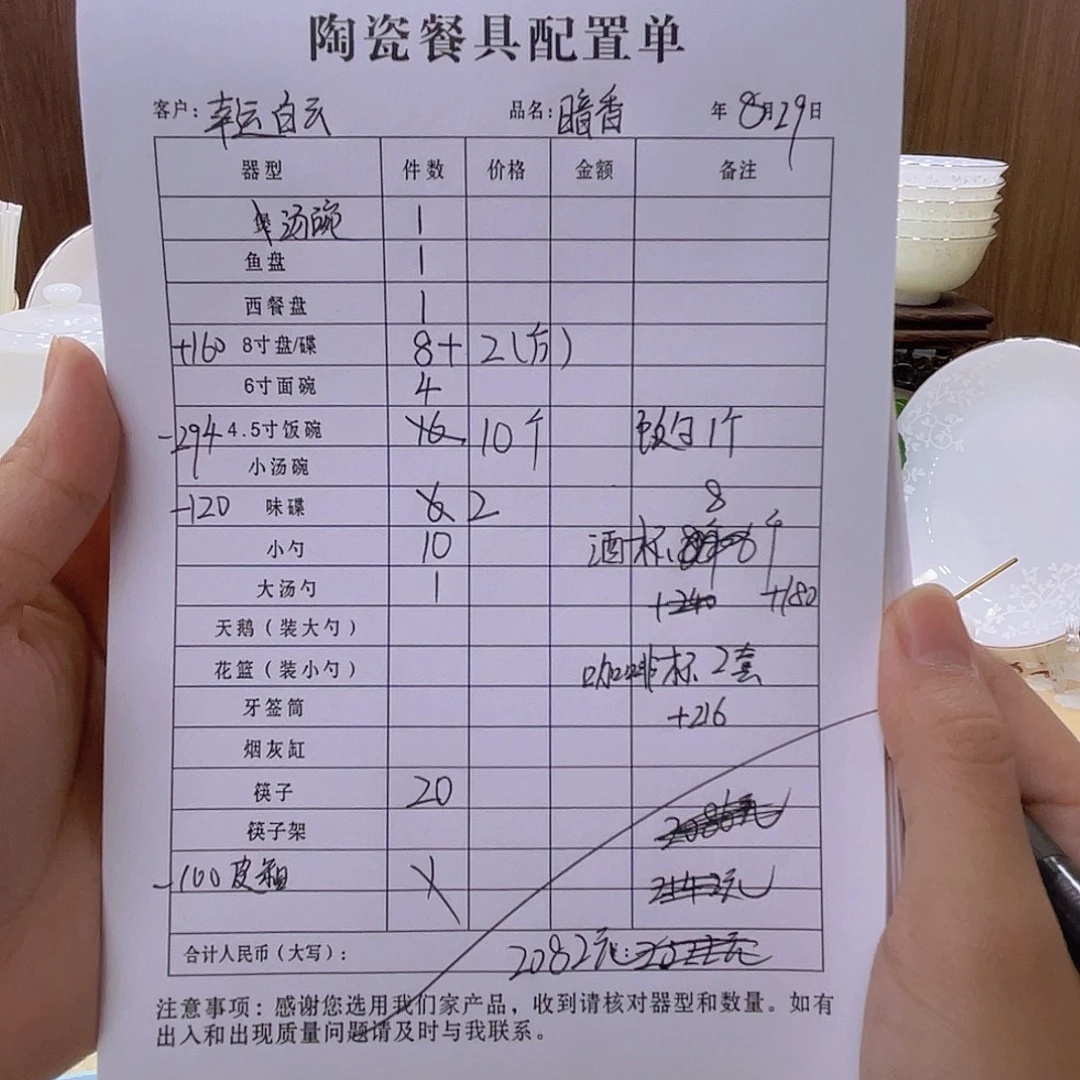 陶瓷餐具配置单
客户：幸运白云 品名：暗香 年 8月29日
器型 件数 价格 金额 备注
煲汤碗 1
鱼盘 1
西餐盘 1
+160 8寸盘/碟 8+2(方)
6寸面碗 4
-294 4.5寸饭碗 16 10个 1个
小汤碗
-120 味碟 6 2 8
小勺 10 酒杯 6个
大汤勺 1 +240 +180
天鹅（装大勺）
花篮（装小勺） 咖啡杯 2套
牙签筒 +216
烟灰缸
筷子 20
筷子架 2086元
-100 皮箱 X 2142元
合计人民币（大写）： 2082元
注意事项：感谢您选用我们家产品，收到请核对器型和数量。如有
出入和出现质量问题请及时与我联系。